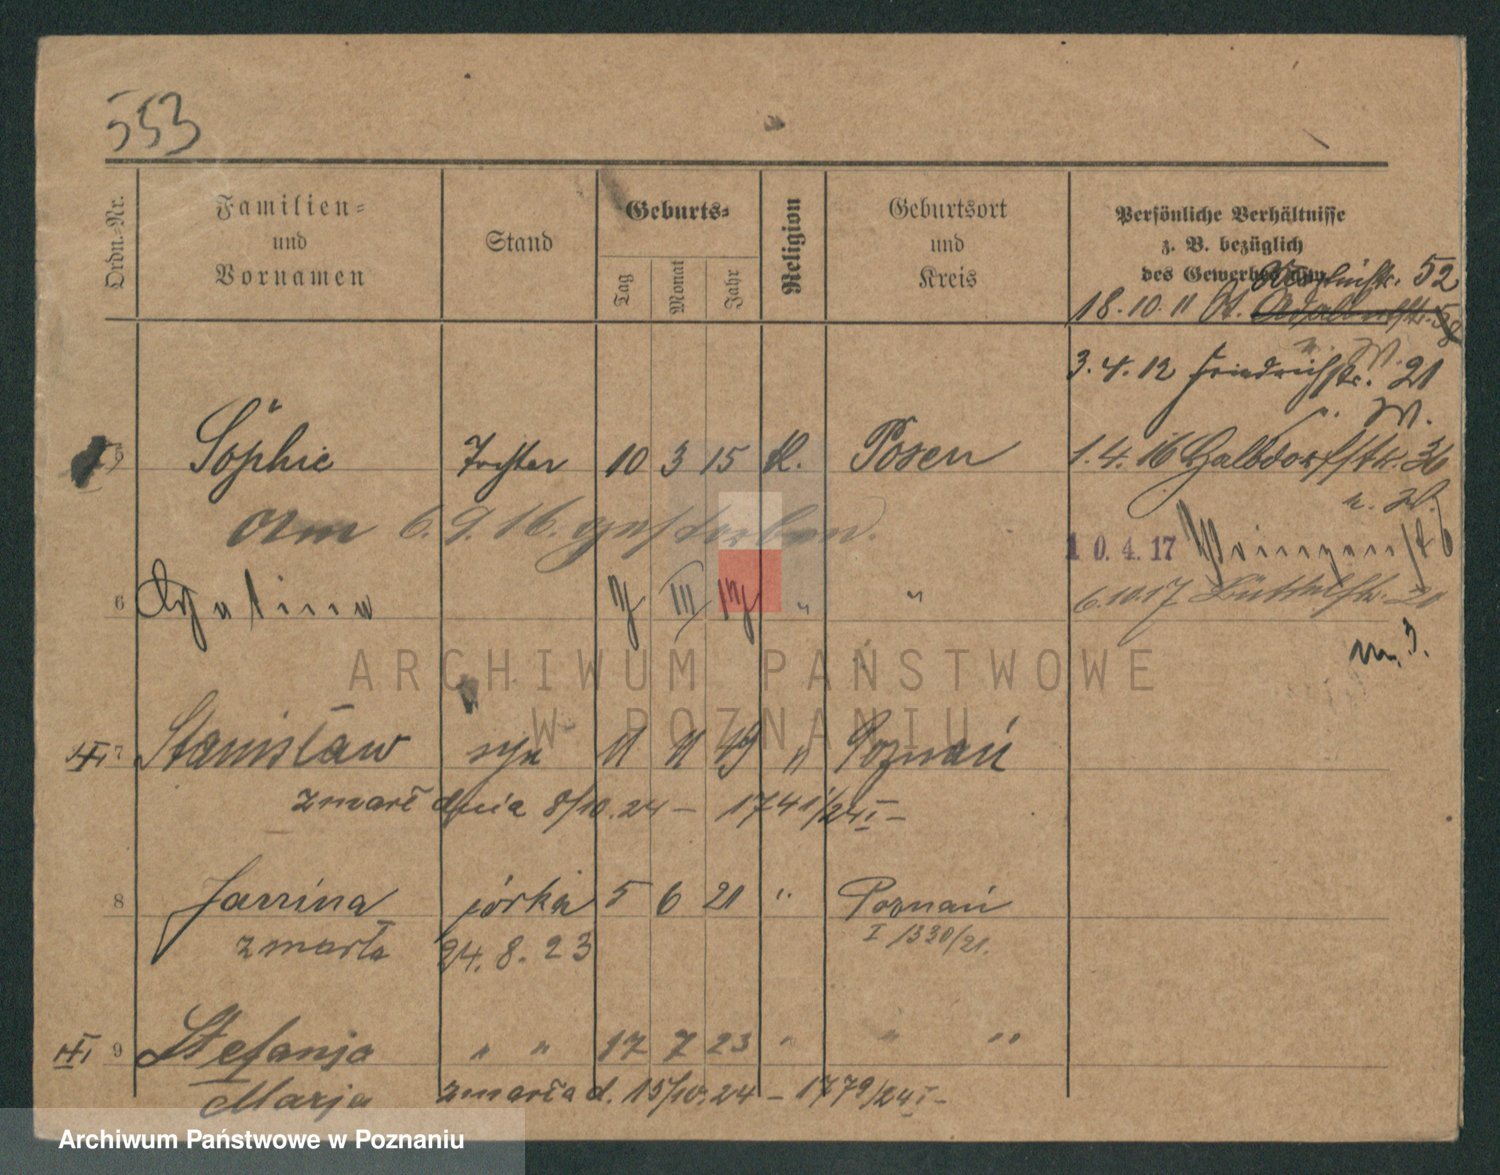 553
Ordn.-Nr.
Familien-
und
Vornamen
Stand
Geburts-
Tag
Monat
Jahr
Religion
Geburtsort
und
Kreis
Persönliche Verhältnisse
z. B. bezüglich
des Gewerbes usw.
52
18.10.11
3.4.12 Friedrichstr. 21
u. W.
5 Sophie Tochter 10 3 15 K. Posen 1.4.16 Halbdorfstr. 36
u. W.
Am 6.9.16. gestorben.
10.4.17
6 III " "
6.10.17 Büttelstr. 20
ARCHIWUM PAŃSTWOWE
W POZNANIU
7 Stanisław syn 11 11 19 " Poznań
zmarł dnia 8/10.24 – 1741/24 I –
8 Janina córka 5 6 21 " Poznań
zmarła 24.8.23
I 1330/21.
9 Stefanja " " 17 7 23 " " "
Marja zmarła d. 15/10.24 – 1779/24 I –
Archiwum Państwowe w Poznaniu